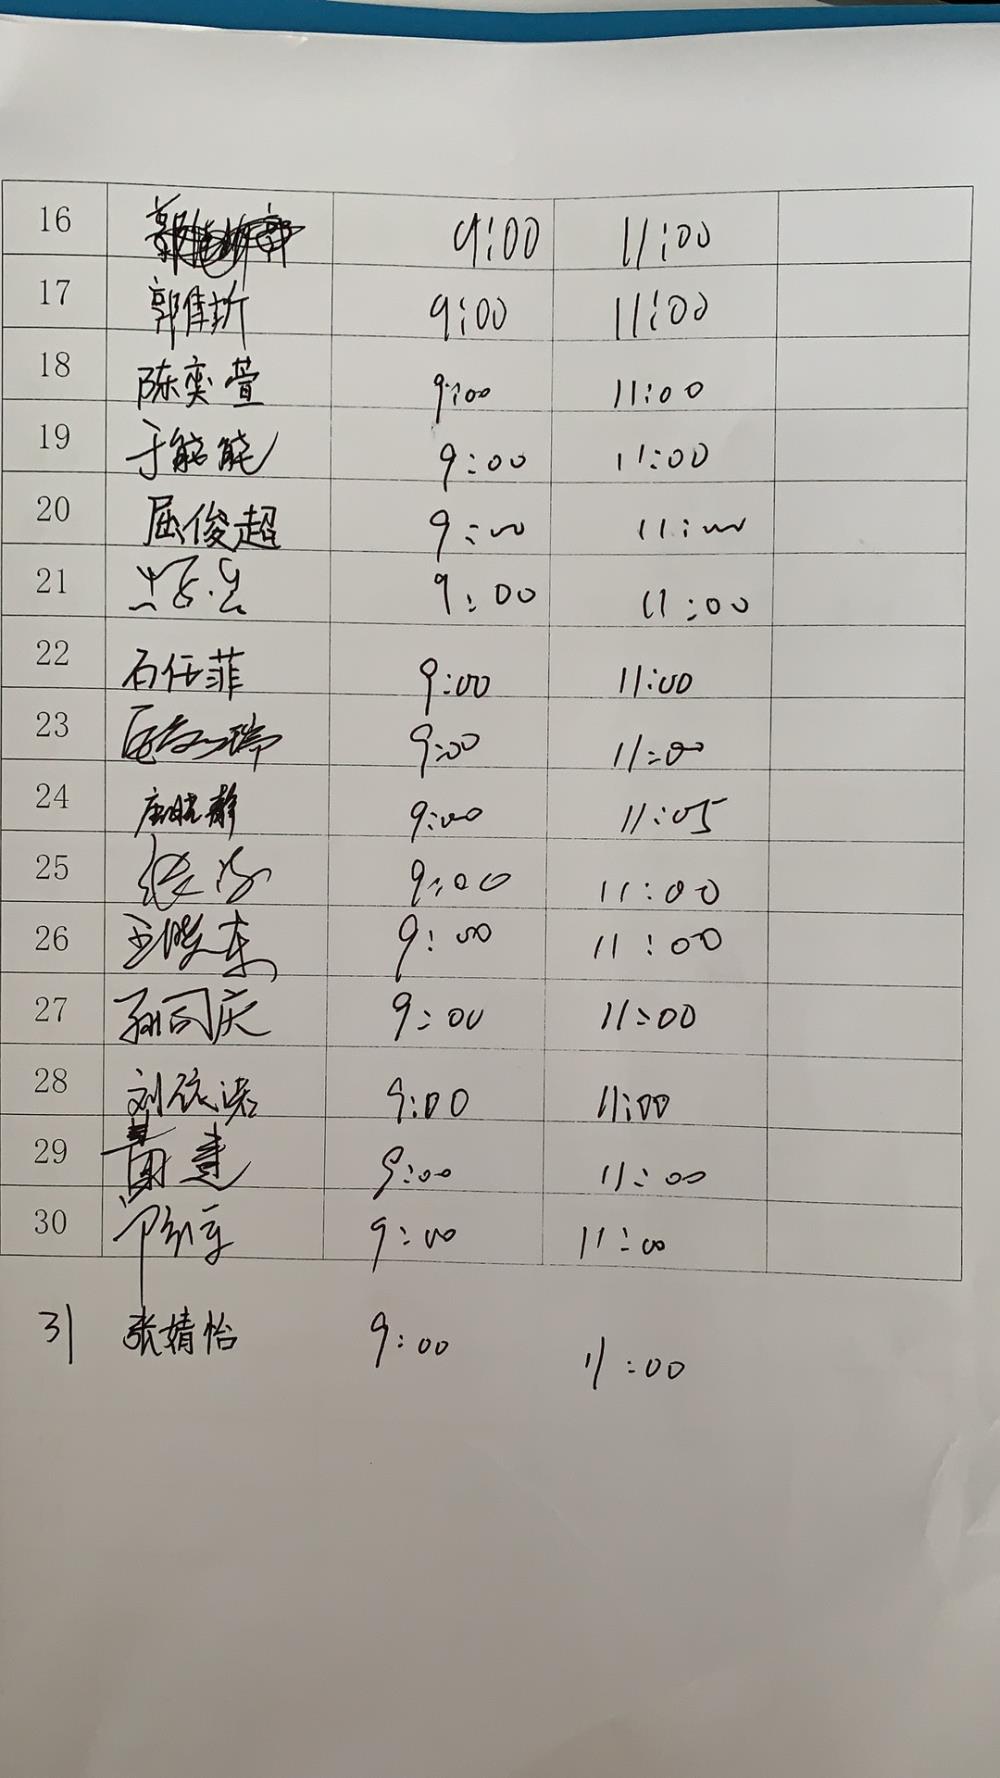 16 9:00 11:00
17 郭佳圻 9:00 11:00
18 陈奕萱 9:00 11:00
19 于 9:00 11:00
20 屈俊超 9:00 11:00
21 9:00 11:00
22 石任菲 9:00 11:00
23 9:00 11:00
24 静 9:00 11:05
25 张 9:00 11:00
26 王晓东 9:00 11:00
27 孙同庆 9:00 11:00
28 刘依诺 9:00 11:00
29 9:00 11:00
30 9:00 11:00
31 张婧怡 9:00 11:00